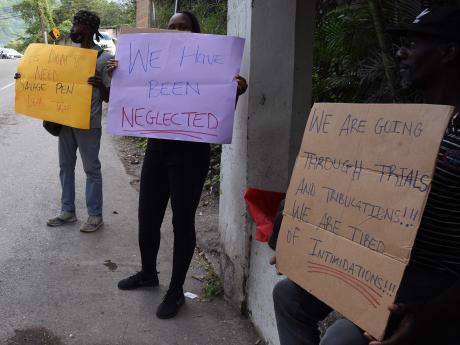 DON'T
NEED
PEN
WE HAVE
BEEN
NEGLECTED
WE ARE GOING
THROUGH TRIALS
AND TRIBUTATIONS!!!
WE ARE TIRED
OF INTIMIDATIONS!!!